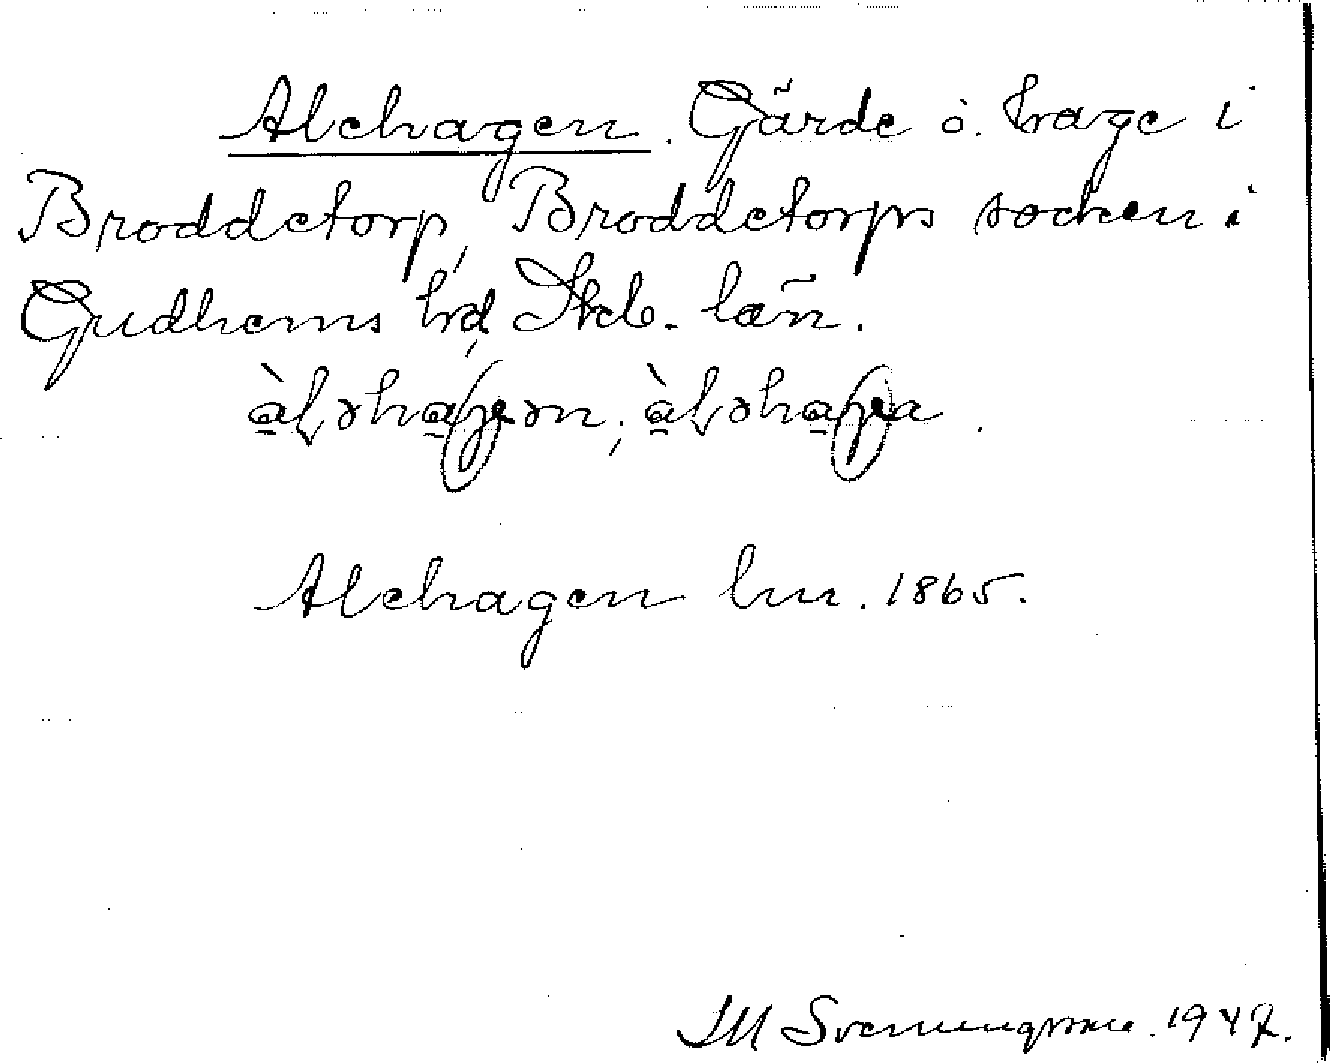 Alehagen. Gärde o. hage i
Broddetorp, Broddetorps socken i
Gudhems hd, Skb. län.
Alehagen lm. 1865.
SM Svenungsson. 1947.